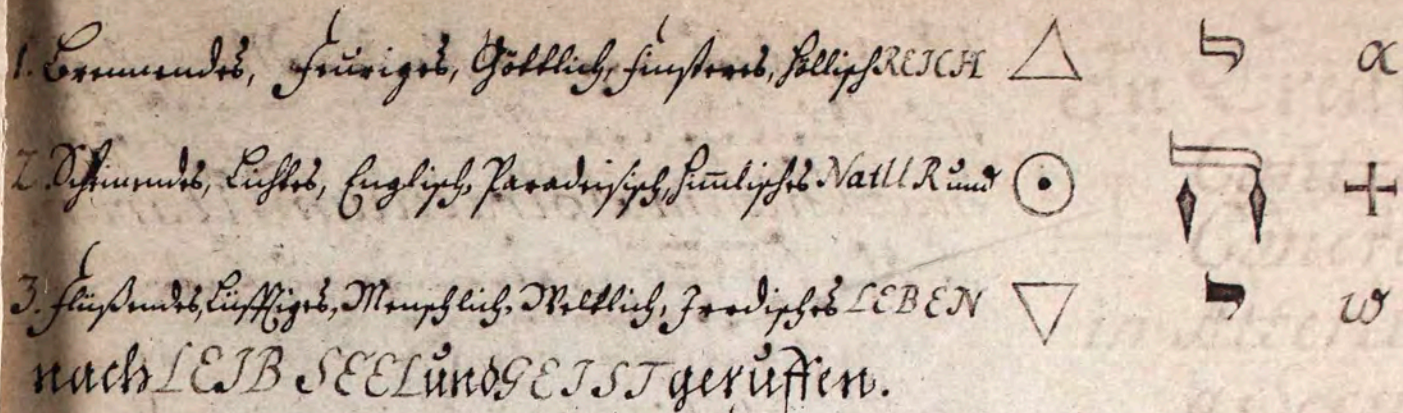 1. Brennendes, Feuriges, Göttlich, finsteres, höllisch REICH △ י α
2. Scheinendes, Lichtes, Englisch, Paradeisisch, Him̄lisches NatUR und ☉ ה +
3. Flüßendes, Lüfftiges, Menschlich, Weltlich, Irrdisches LEBEN ▽ י ω
nach LEIB SEEL und GEIST geruffen.